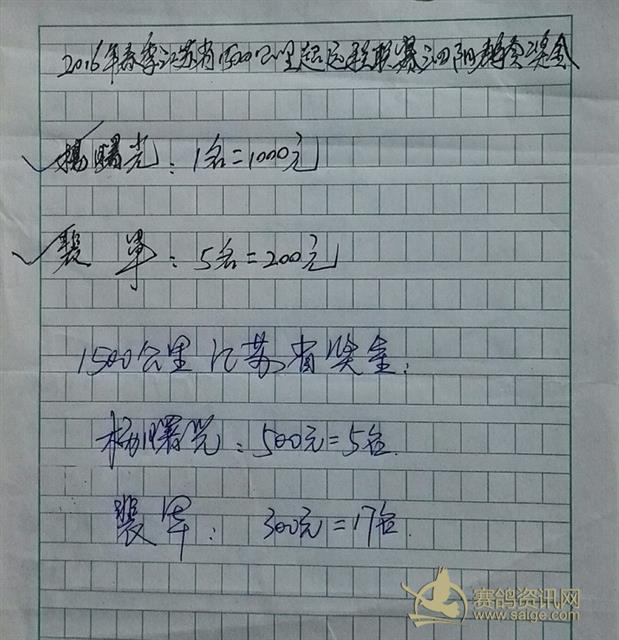 2016年春季江苏省1500公里超远程联赛泗阳赛区奖金
楊曙光：1名=1000元
裴军：5名=200元
1500公里江苏省奖金：
杨曙光：500元=5名
裴军：300元=17名
赛鸽资讯网
www.saige.com